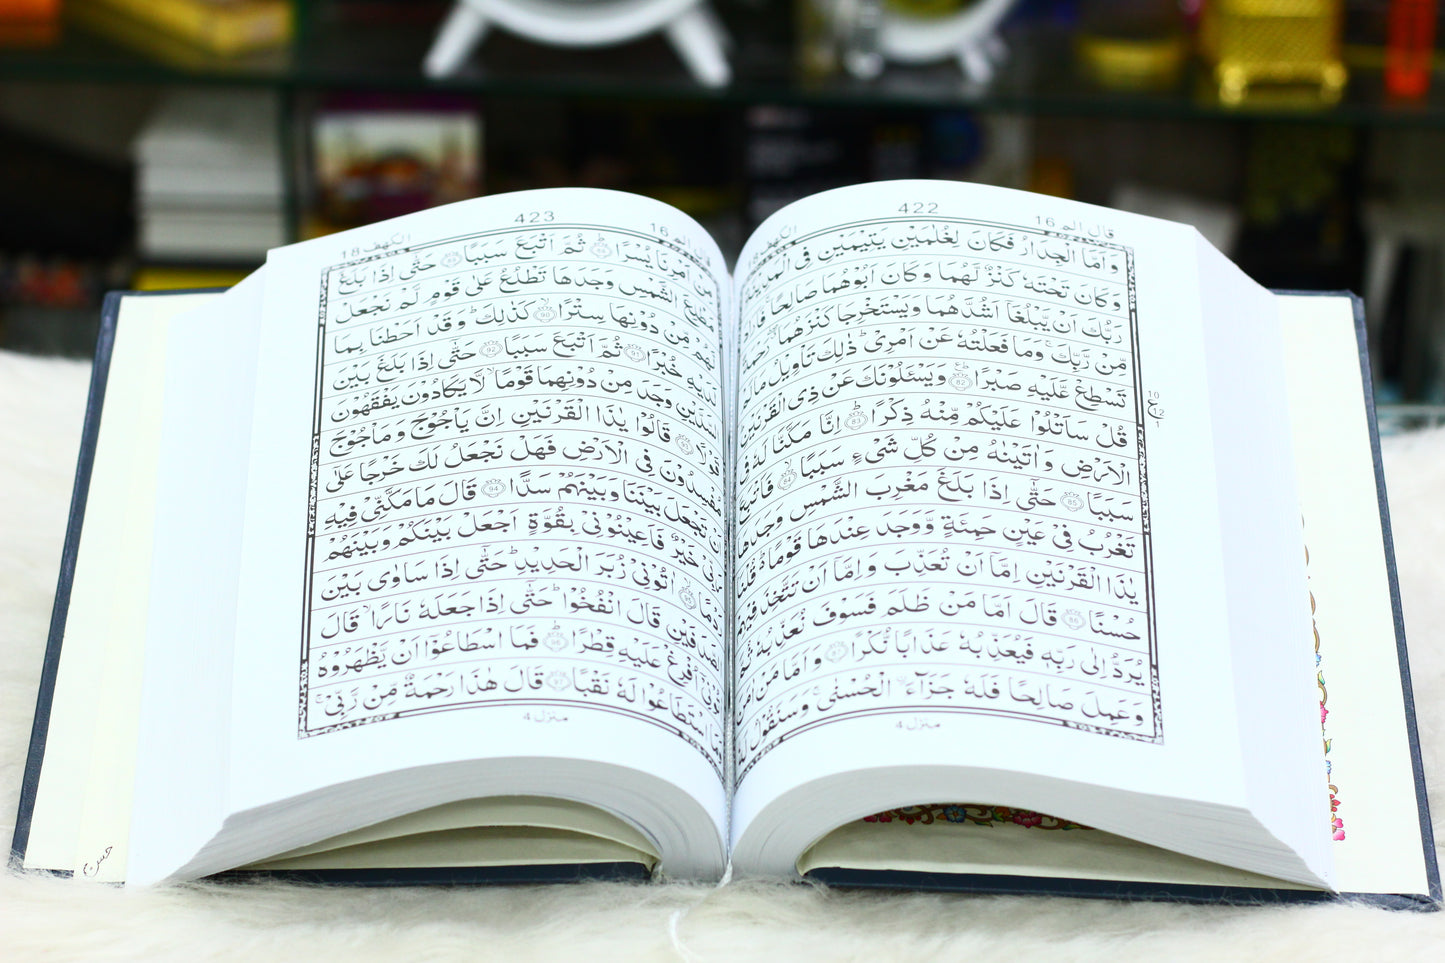 قال الم 16 422 الكهف 18
وَاَمَّا الْجِدَارُ فَكَانَ لِغُلٰمَيْنِ يَتِيْمَيْنِ فِى
وَكَانَ تَحْتَهٗ كَنْزٌ لَّهُمَا وَكَانَ اَبُوْهُمَا صَالِحًا ۚ
رَبُّكَ اَنْ يَّبْلُغَاۤ اَشُدَّهُمَا وَيَسْتَخْرِجَا كَنْزَهُمَا ۖ
مِّنْ رَّبِّكَ ۚ وَمَا فَعَلْتُهٗ عَنْ اَمْرِىْ ؕ ذٰلِكَ تَاْوِيْلُ مَا
تَسْطِعْ عَّلَيْهِ صَبْرًا ؕ 82 وَيَسْـَٔلُوْنَكَ عَنْ ذِى الْقَرْنَيْنِ
قُلْ سَاَتْلُوْا عَلَيْكُمْ مِّنْهُ ذِكْرًا ؕ 83 اِنَّا مَكَّنَّا لَهٗ
الْاَرْضِ وَاٰتَيْنٰهُ مِنْ كُلِّ شَىْءٍ سَبَبًا ۙ 84
سَبَبًا 85 حَتّٰۤى اِذَا بَلَغَ مَغْرِبَ الشَّمْسِ وَجَدَهَا
تَغْرُبُ فِىْ عَيْنٍ حَمِئَةٍ وَّوَجَدَ عِنْدَهَا قَوْمًا ؕ
يٰذَا الْقَرْنَيْنِ اِمَّاۤ اَنْ تُعَذِّبَ وَاِمَّاۤ اَنْ تَتَّخِذَ
حُسْنًا 86 قَالَ اَمَّا مَنْ ظَلَمَ فَسَوْفَ نُعَذِّبُهٗ
يُرَدُّ اِلٰى رَبِّهٖ فَيُعَذِّبُهٗ عَذَابًا نُّكْرًا 87 وَاَمَّا مَنْ
وَعَمِلَ صَالِحًا فَلَهٗ جَزَآءَ ࣙالْحُسْنٰى ۚ وَسَنَقُوْلُ
منزل 4
قال الم 16 423 الكهف 18
مِنْ اَمْرِنَا يُسْرًا ؕ 88 ثُمَّ اَتْبَعَ سَبَبًا 89 حَتّٰۤى اِذَا بَلَغَ
مَطْلِعَ الشَّمْسِ وَجَدَهَا تَطْلُعُ عَلٰى قَوْمٍ لَّمْ نَجْعَلْ
لَّهُمْ مِّنْ دُوْنِهَا سِتْرًا ۙ 90 كَذٰلِكَ ؕ وَقَدْ اَحَطْنَا بِمَا
لَدَيْهِ خُبْرًا 91 ثُمَّ اَتْبَعَ سَبَبًا 92 حَتّٰۤى اِذَا بَلَغَ بَيْنَ
السَّدَّيْنِ وَجَدَ مِنْ دُوْنِهِمَا قَوْمًا ۙ لَّا يَكَادُوْنَ يَفْقَهُوْنَ
قَوْلًا 93 قَالُوْا يٰذَا الْقَرْنَيْنِ اِنَّ يَاْجُوْجَ وَمَاْجُوْجَ
مُفْسِدُوْنَ فِى الْاَرْضِ فَهَلْ نَجْعَلُ لَكَ خَرْجًا عَلٰۤى
اَنْ تَجْعَلَ بَيْنَنَا وَبَيْنَهُمْ سَدًّا 94 قَالَ مَا مَكَّنِّىْ فِيْهِ
رَبِّىْ خَيْرٌ فَاَعِيْنُوْنِىْ بِقُوَّةٍ اَجْعَلْ بَيْنَكُمْ وَبَيْنَهُمْ
رَدْمًا ۙ 95 اٰتُوْنِىْ زُبَرَ الْحَدِيْدِ ؕ حَتّٰۤى اِذَا سَاوٰى بَيْنَ
الصَّدَفَيْنِ قَالَ انْفُخُوْا ؕ حَتّٰۤى اِذَا جَعَلَهٗ نَارًا ۙ قَالَ
اٰتُوْنِىْۤ اُفْرِغْ عَلَيْهِ قِطْرًا ؕ 96 فَمَا اسْطَاعُوْۤا اَنْ يَّظْهَرُوْهُ
وَمَا اسْتَطَاعُوْا لَهٗ نَقْبًا 97 قَالَ هٰذَا رَحْمَةٌ مِّنْ رَّبِّىْ ۚ
منزل 4